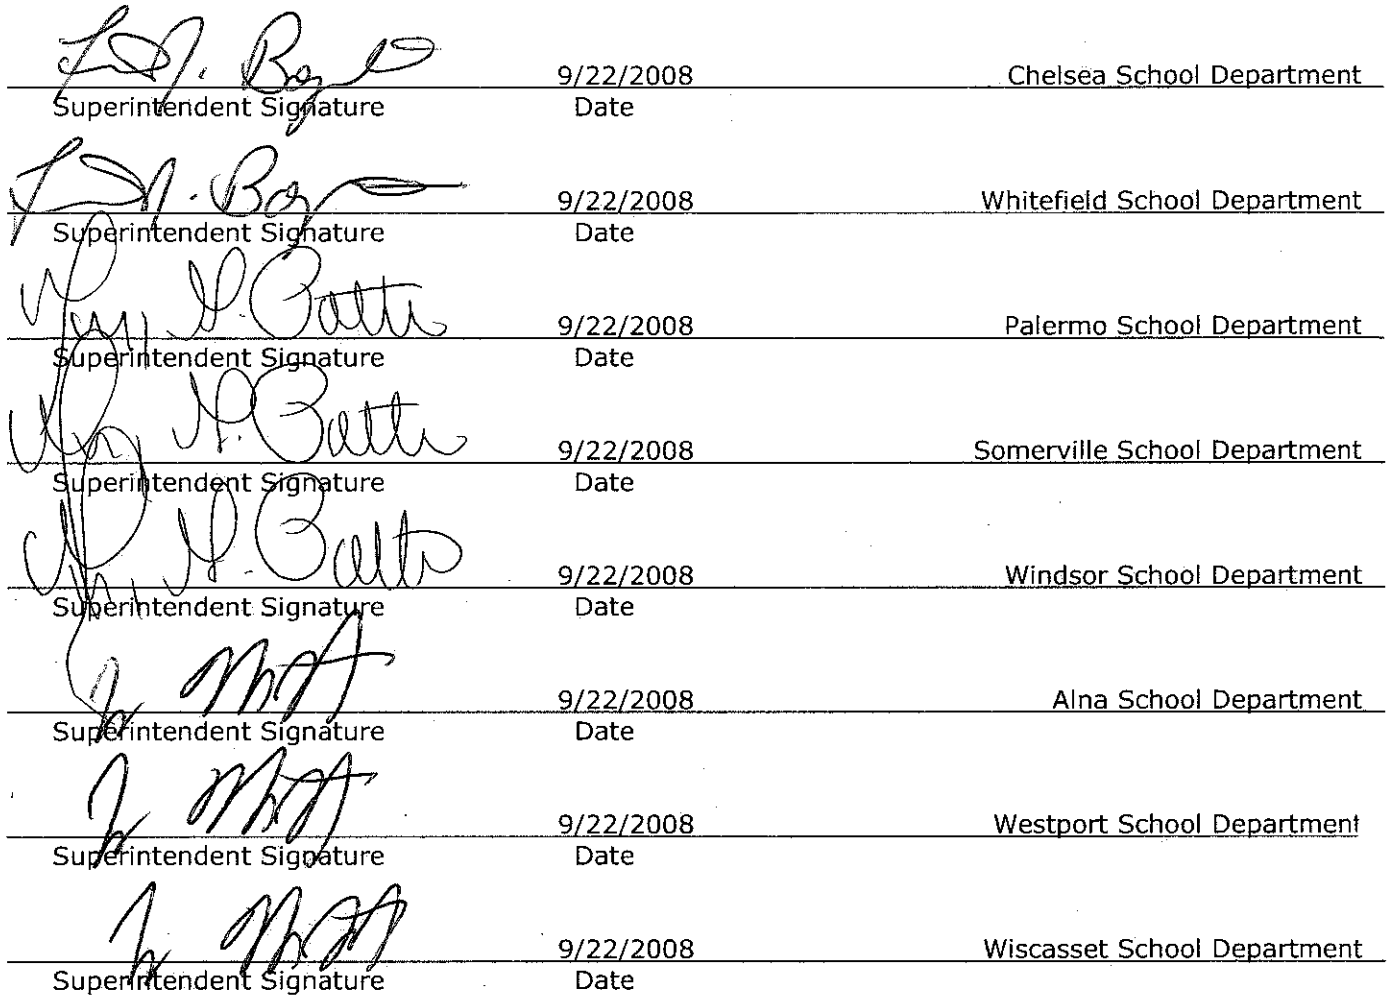 9/22/2008 Chelsea School Department
Superintendent Signature Date
9/22/2008 Whitefield School Department
Superintendent Signature Date
9/22/2008 Palermo School Department
Superintendent Signature Date
9/22/2008 Somerville School Department
Superintendent Signature Date
9/22/2008 Windsor School Department
Superintendent Signature Date
9/22/2008 Alna School Department
Superintendent Signature Date
9/22/2008 Westport School Department
Superintendent Signature Date
9/22/2008 Wiscasset School Department
Superintendent Signature Date